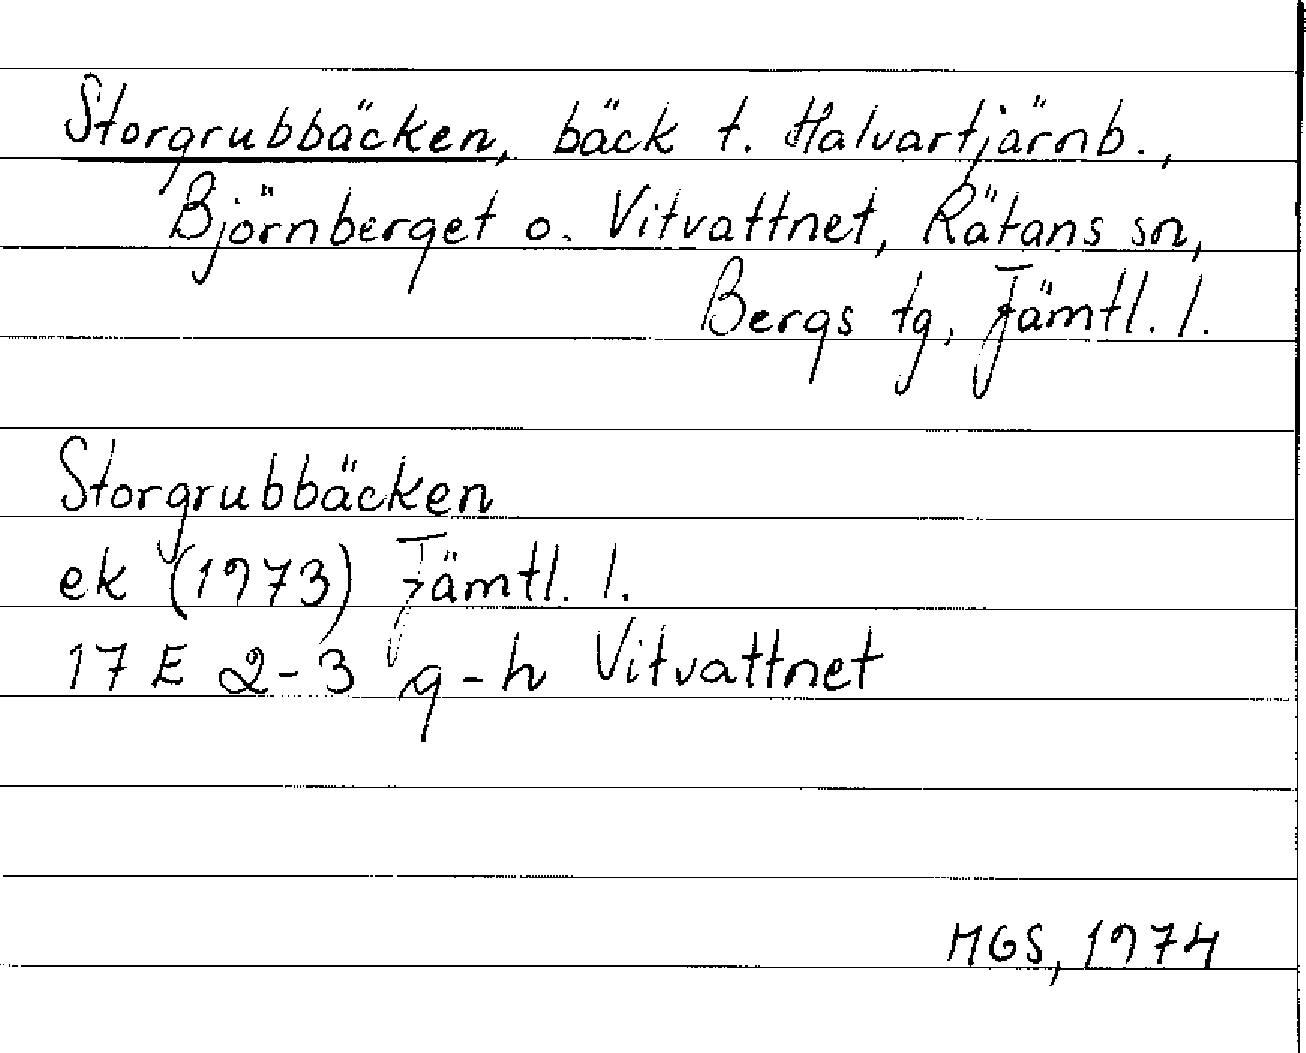 Storgrubbäcken, bäck t. Halvartjärnb.,
Björnberget o. Vitvattnet, Rätans sn,
Bergs tg, Jämtl. l.
Storgrubbäcken
ek (1973) Jämtl. l.
17 E 2-3 g-h Vitvattnet
MGS, 1974